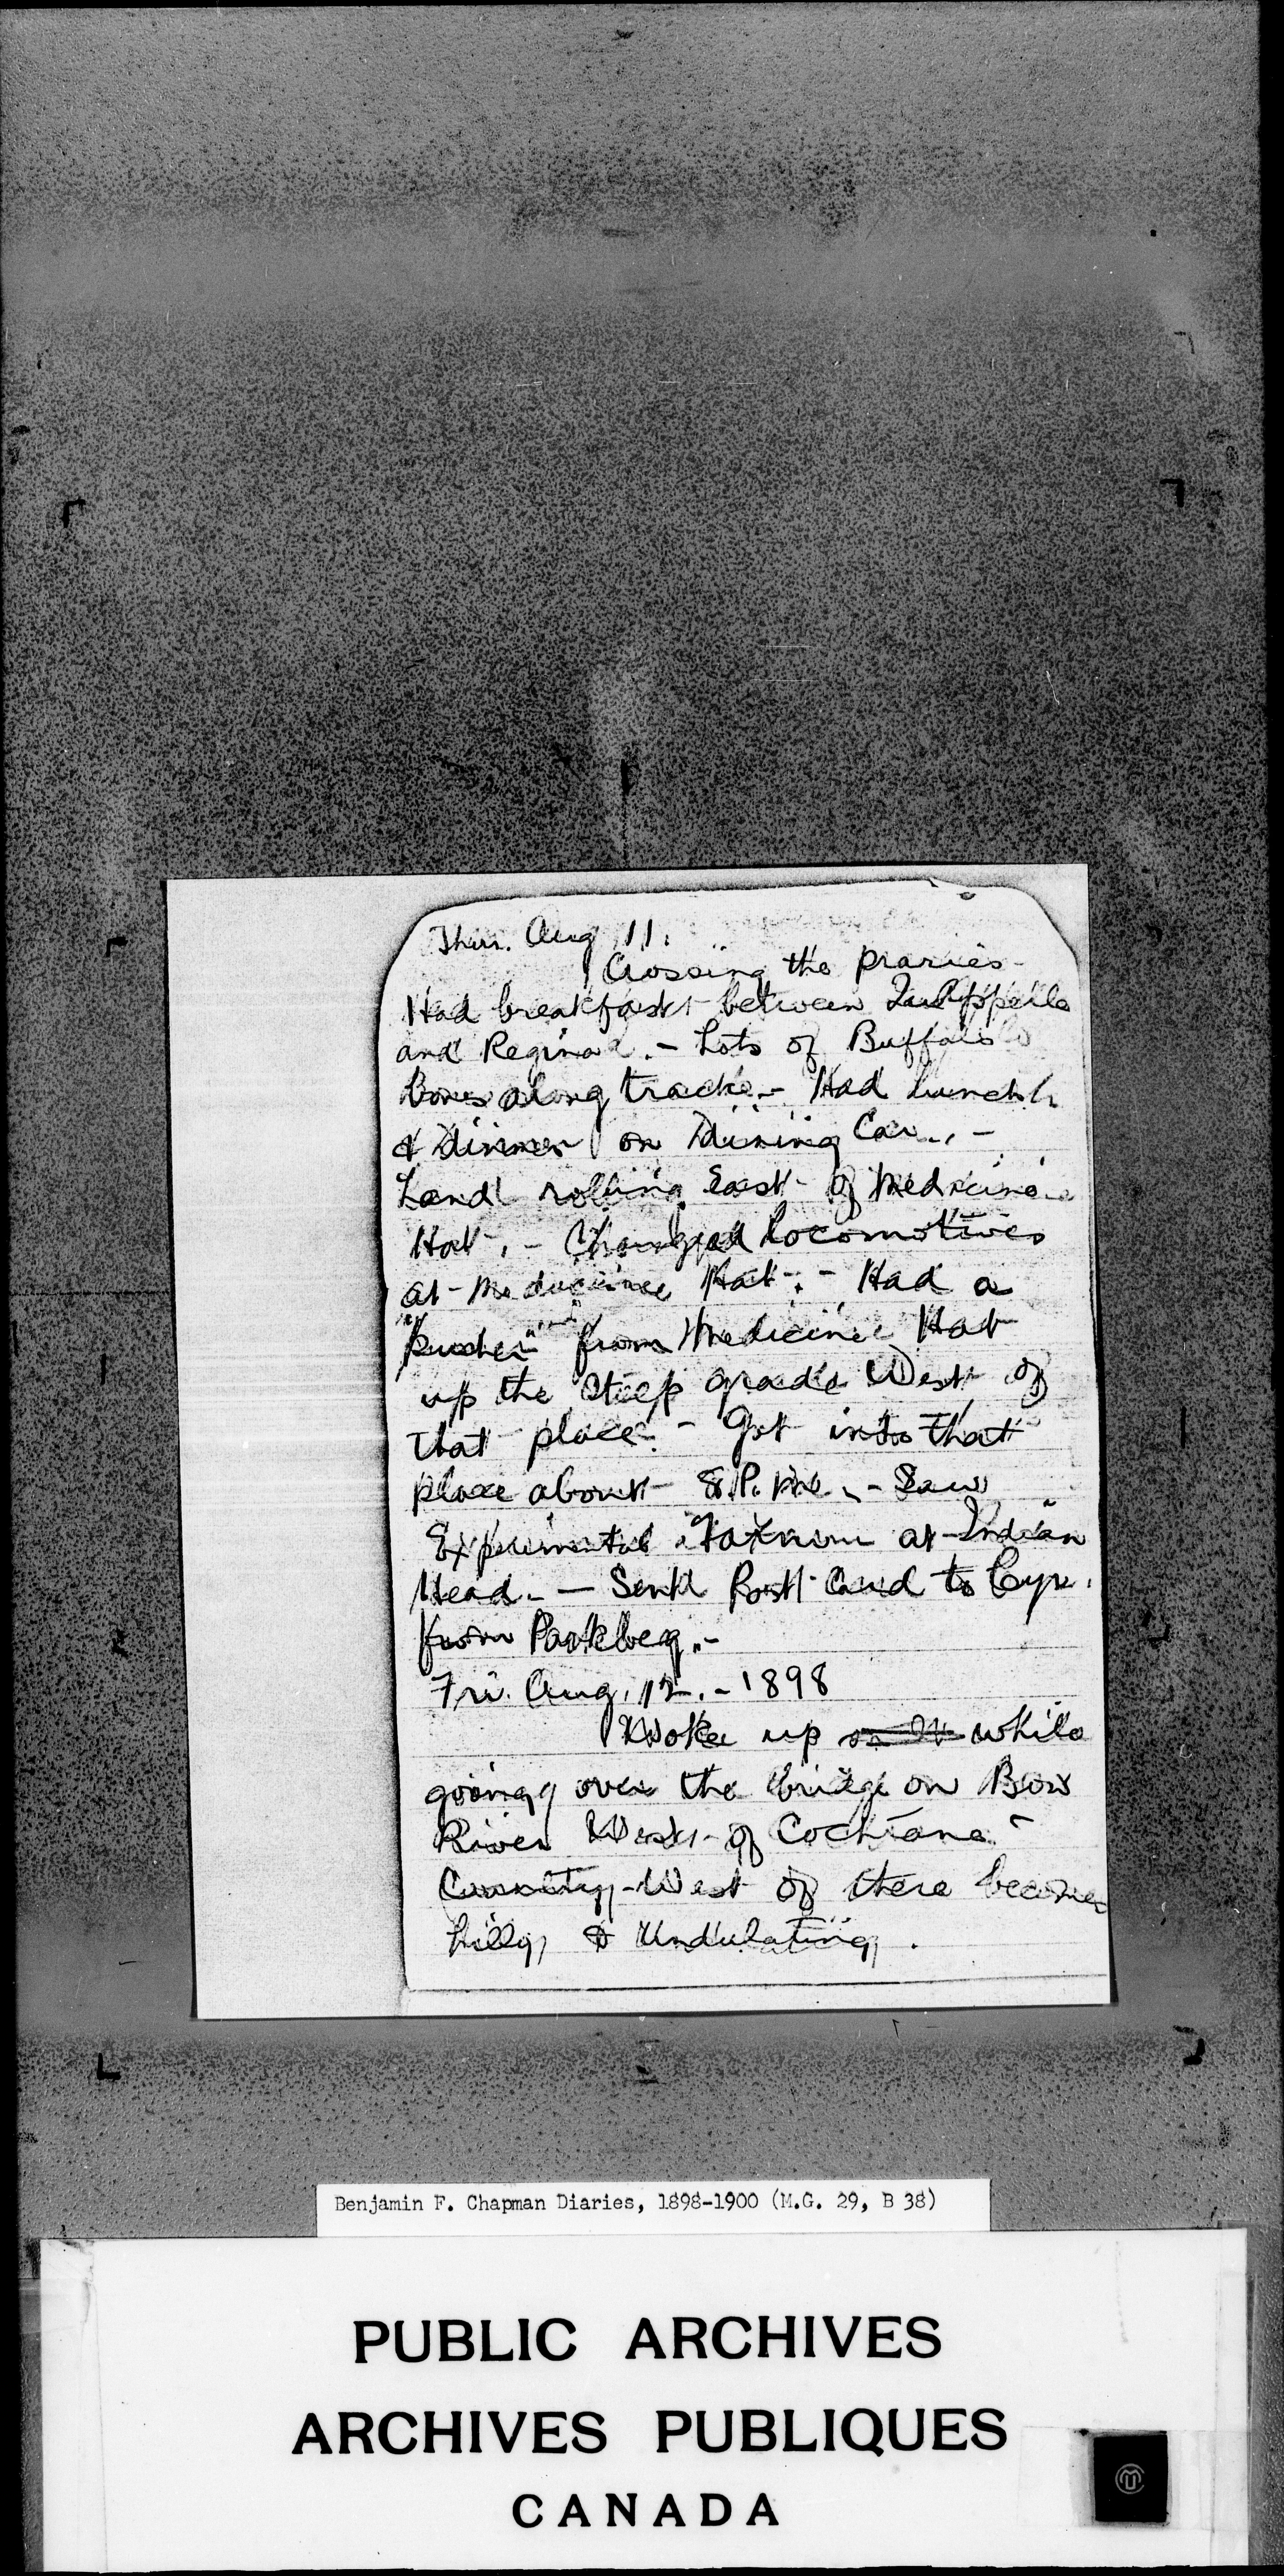 Thur. Aug 11.
Crossing the praries -
Had breakfast between Qu'Appelle
and Regina. - Lots of Buffalo
Bones along track. - Had lunch
& Dinner on Dining Car. -
Land rolling East of Medicine
Hat. - Changed locomotives
at Medicine Hat. - Had a
"pusher" from Medicine Hat
up the steep grade West of
that place. - Got into that
place about 8. P. M. - Saw
Experimental Farm at Indian
Head. - Sent Post Card to
from Parkbeg. -
Fri. Aug. 12. - 1898
Woke up while
going over the bridge on Bow
River West of Cochrane -
Country West of there becomes
hilly & undulating.
Benjamin F. Chapman Diaries, 1898-1900 (M.G. 29, B 38)
PUBLIC ARCHIVES
ARCHIVES PUBLIQUES
CANADA